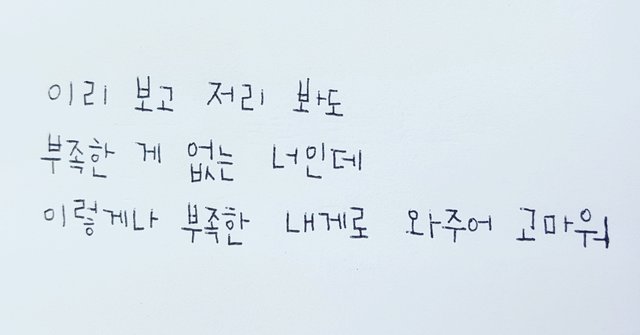 이리 보고 저리 봐도
부족한 게 없는 너인데
이렇게나 부족한 내게로 와주어 고마워